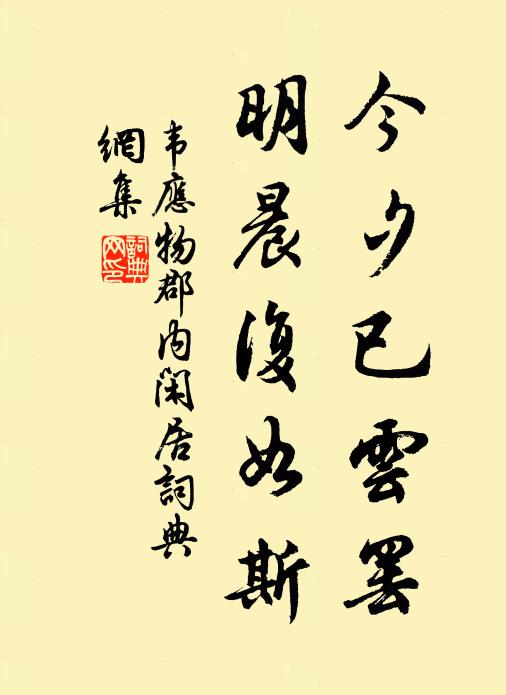 今夕已雲罷
明晨復如斯
韦應物郡内閑居詞典
網集
詞典网印